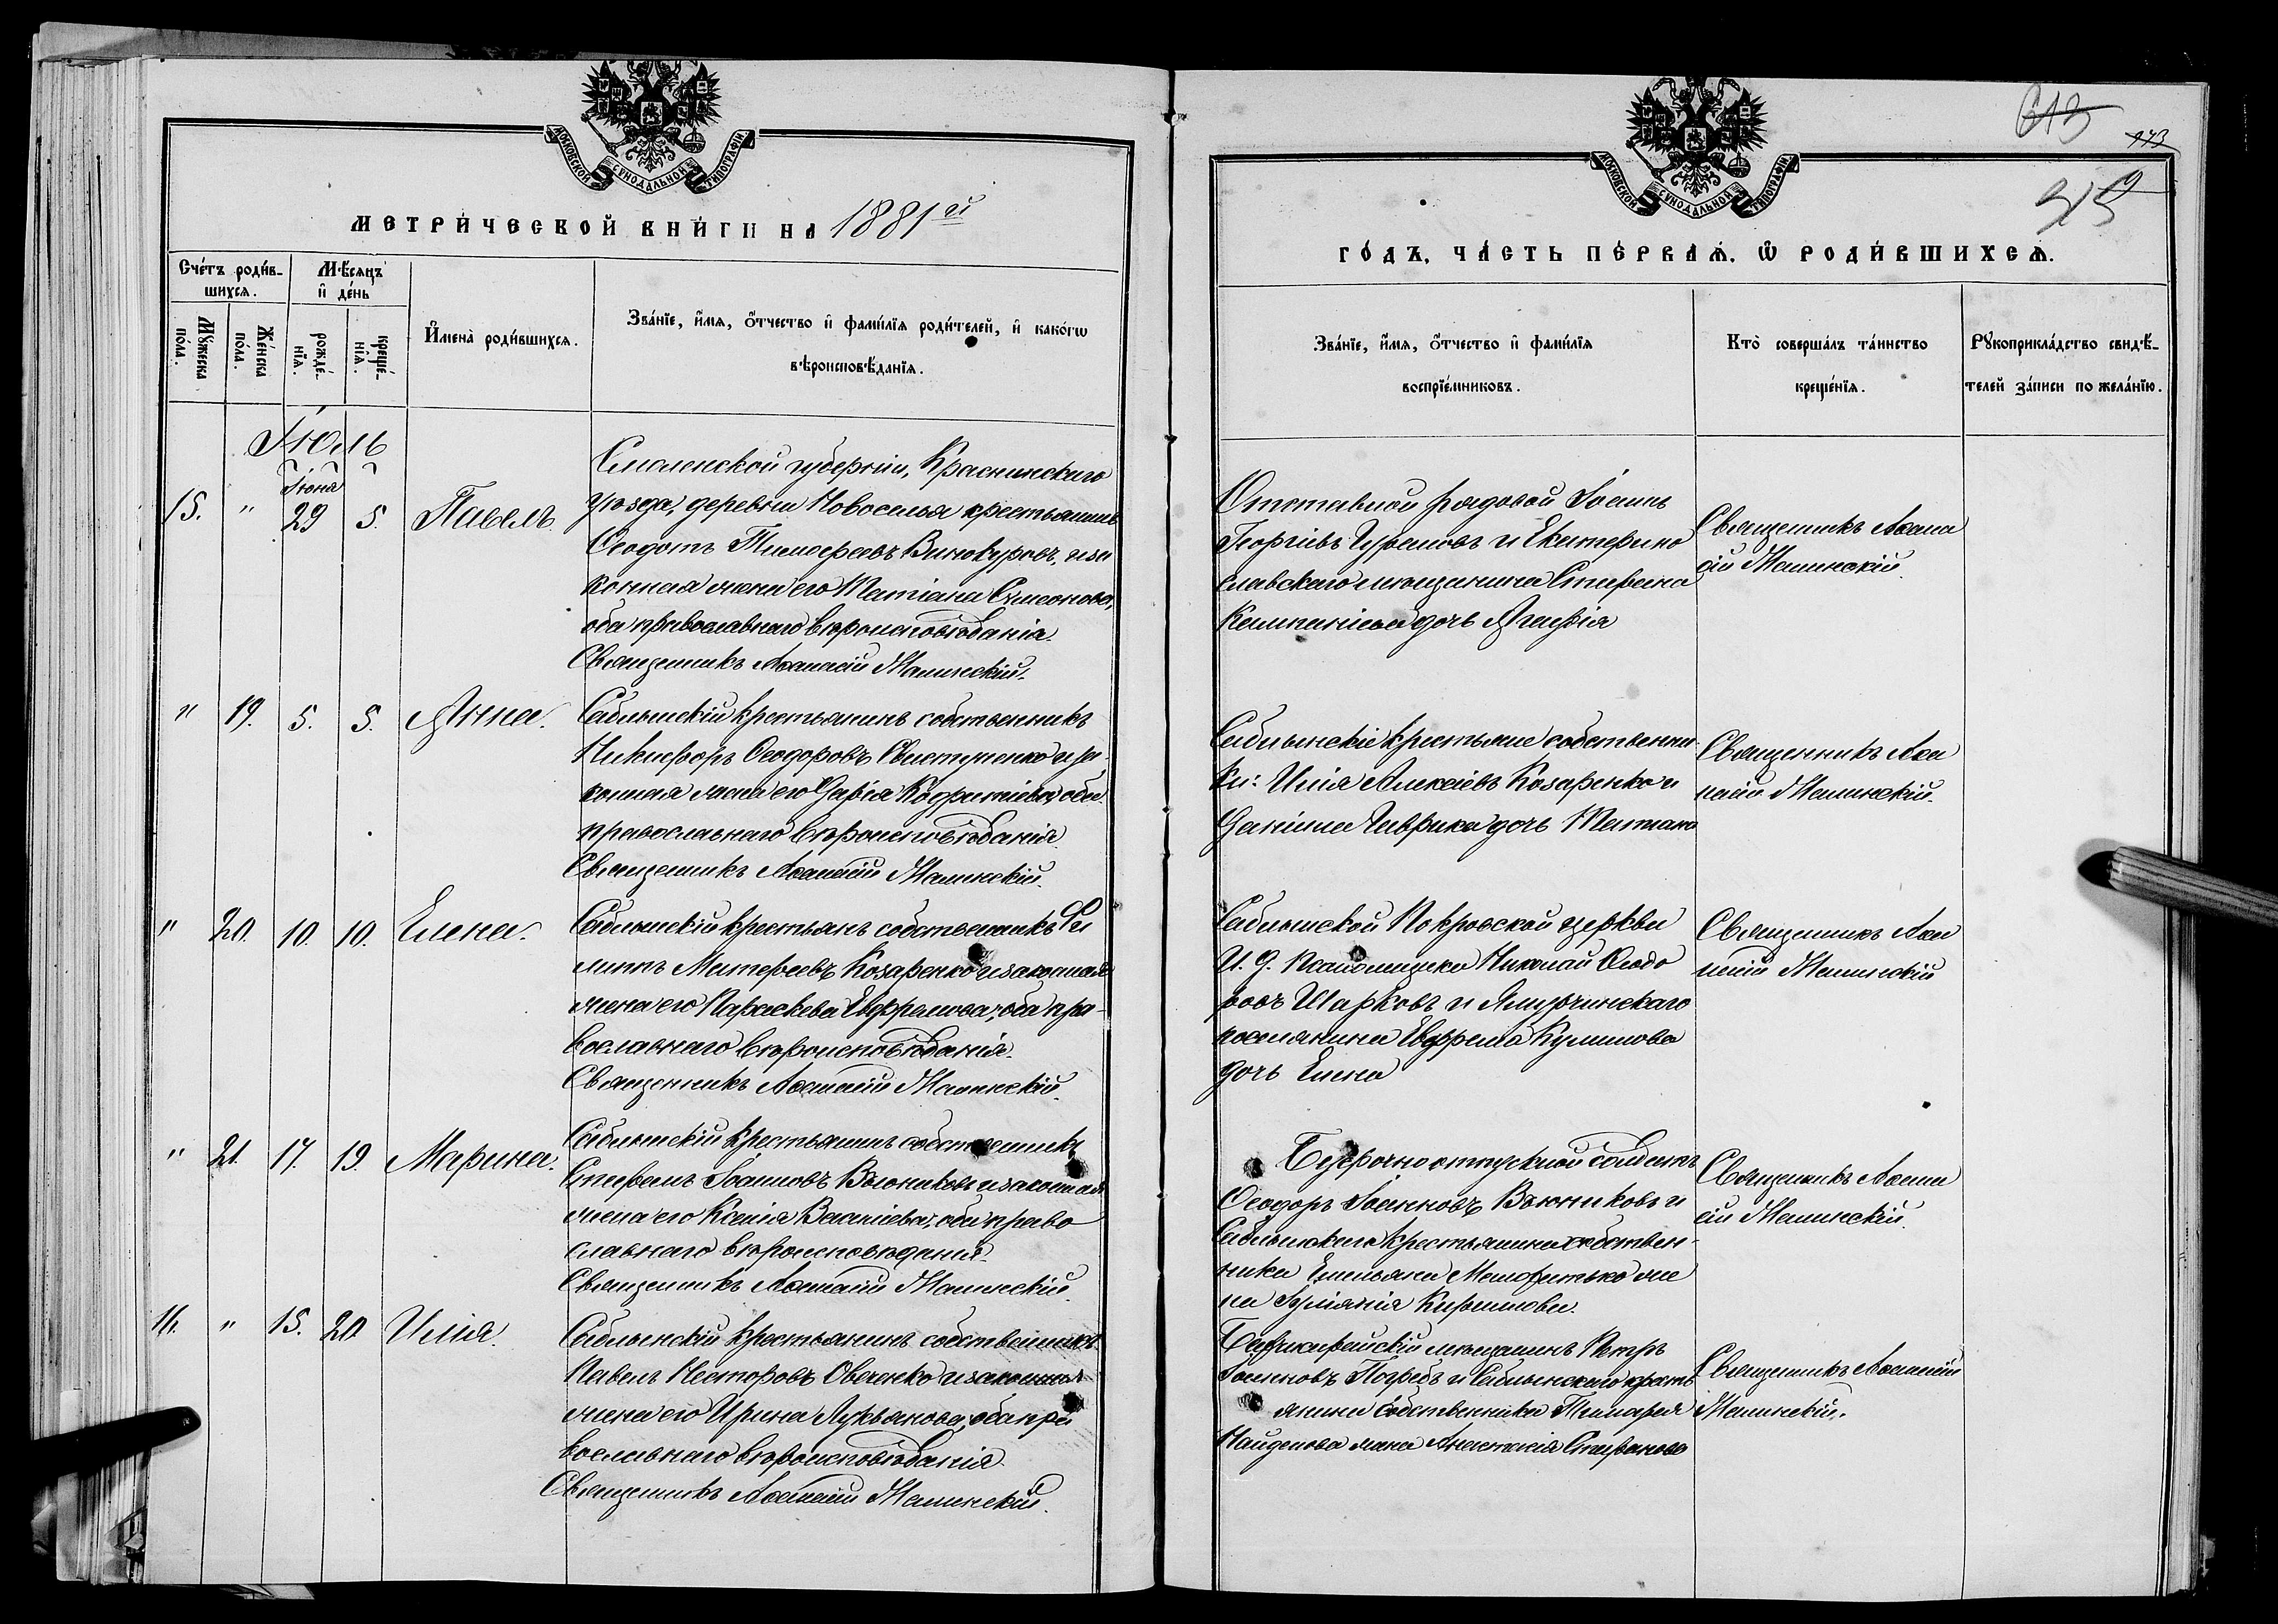 МОСКОВСКОЙ СѴНОДАЛЬНОЙ ТИПОГРАФІИ
МЕТРИ́ЧЕСКОЙ КНИ́ГИ НА 1881й
Сче́тъ роди́в-
шихся.
Мѣ́сяцъ
и҆ де́нь
Мꙋ́жеска
по́ла.
Же́нска
по́ла.
рожде́-
нїѧ.
креще́-
нїѧ.
И҆мена̀ роди́вшихся.
Зва́нїе, и҆́мя, ѻ҆́тчество и҆ фами́лїя роди́телей, и҆ како́гѡ
вѣроисповѣ́данїя.
Іюль
15. " Іюня 29 5. Павелъ.
Смоленской губерніи, Краснинскаго
уѣзда, деревни Новоселья крестьянинъ
Ѳеодотъ Тимофеевъ Винокуровъ, и за
конная жена его Татіана Симеонова,
оба православнаго вѣроисповѣданія.
Священникъ Аѳанасій Малинскій.
" 19. 5. 5. Анна.
Саблынскій крестьянинъ собственникъ
Никифоръ Ѳеодоровъ Свистуненко и за-
конная жена его Дарія Кодратіева, оба
православнаго вѣроисповѣданія.
Священникъ Аѳанасій Малинскій.
" 20. 10. 10. Елена.
Саблынскій крестьянъ собственникъ Фи
липпъ Матфеевъ Козаренко и законная
жена его Параскева Евфремова, оба пра-
вославнаго вѣроисповѣданія.
Священникъ Аѳанасій Малинскій.
" 21. 17. 19. Марина.
Саблынскій крестьянинъ собственникъ
Стефанъ Іоанновъ Вьюниковъ и законная
жена его Ксенія Василіева, оба право
славнаго вѣроисповѣданія.
Священникъ Аѳанасій Малинскій.
16. " 15. 20 Илія.
Саблынскій крестьянинъ собственникъ
Павелъ Несторовъ Овечко и законная
жена его Ирина Лукьянова, оба пра
вославнаго вѣроисповѣданія.
Священникъ Аѳанасій Малинскій.
МОСКОВСКОЙ СѴНОДАЛЬНОЙ ТИПОГРАФІИ
613
ГО́ДЪ, ЧА́СТЬ ПЕ́РВАЯ, Ѡ҆ РОДИ́ВШИХСЯ.
Зва́нїе, и҆́мя, ѻ҆́тчество и҆ фами́лїя
воспрїе́мниковъ.
Кто̀ соверша́лъ та́инство
креще́нїя.
Рꙋкоприкла́дство свидѣ́-
телей за́писи по жела́нїю.
Отставной рядовой Іоаннъ
Георгіевъ и Екатерино
славскаго мѣщанина Стефана
дочь Агафія
Священникъ Аѳана
сій Малинскій.
Саблынскіе крестьяне собственни-
ки: Илія Алексіевъ Козаренко и
Даніила Гаврика дочь Татіана
Священникъ Аѳа
насій Малинскій.
Саблынской Покровской церкви
И. д. псаломщика Николай Ѳеодо
ровъ Шарковъ и
поселянина Евфрема Куликова
дочь Елена
Священникъ Аѳа
насій Малинскій
Безсрочно отпускной солдатъ
Ѳеодоръ Іоанновъ Вьюниковъ и
Саблынскаго крестьянина собствен-
ника Емельяна жена
Іуліанія Кириллова.
Священникъ Аѳана
сій Малинскій.
мѣщанинъ Петръ
Іоанновъ Погребъ и Саблынскаго кресть
янина собственника Тимофея
Найденова жена Анастасія Стефанова
Священникъ Аѳанасій
Малинскій.